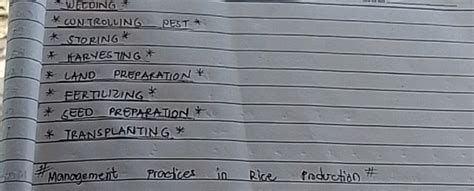 * WEEDING *
* CONTROLLING PEST *
* STORING *
* HARVESTING *
* LAND PREPARATION *
* FERTILIZING *
* SEED PREPARATION *
* TRANSPLANTING *
# Management Practices in Rice Production #